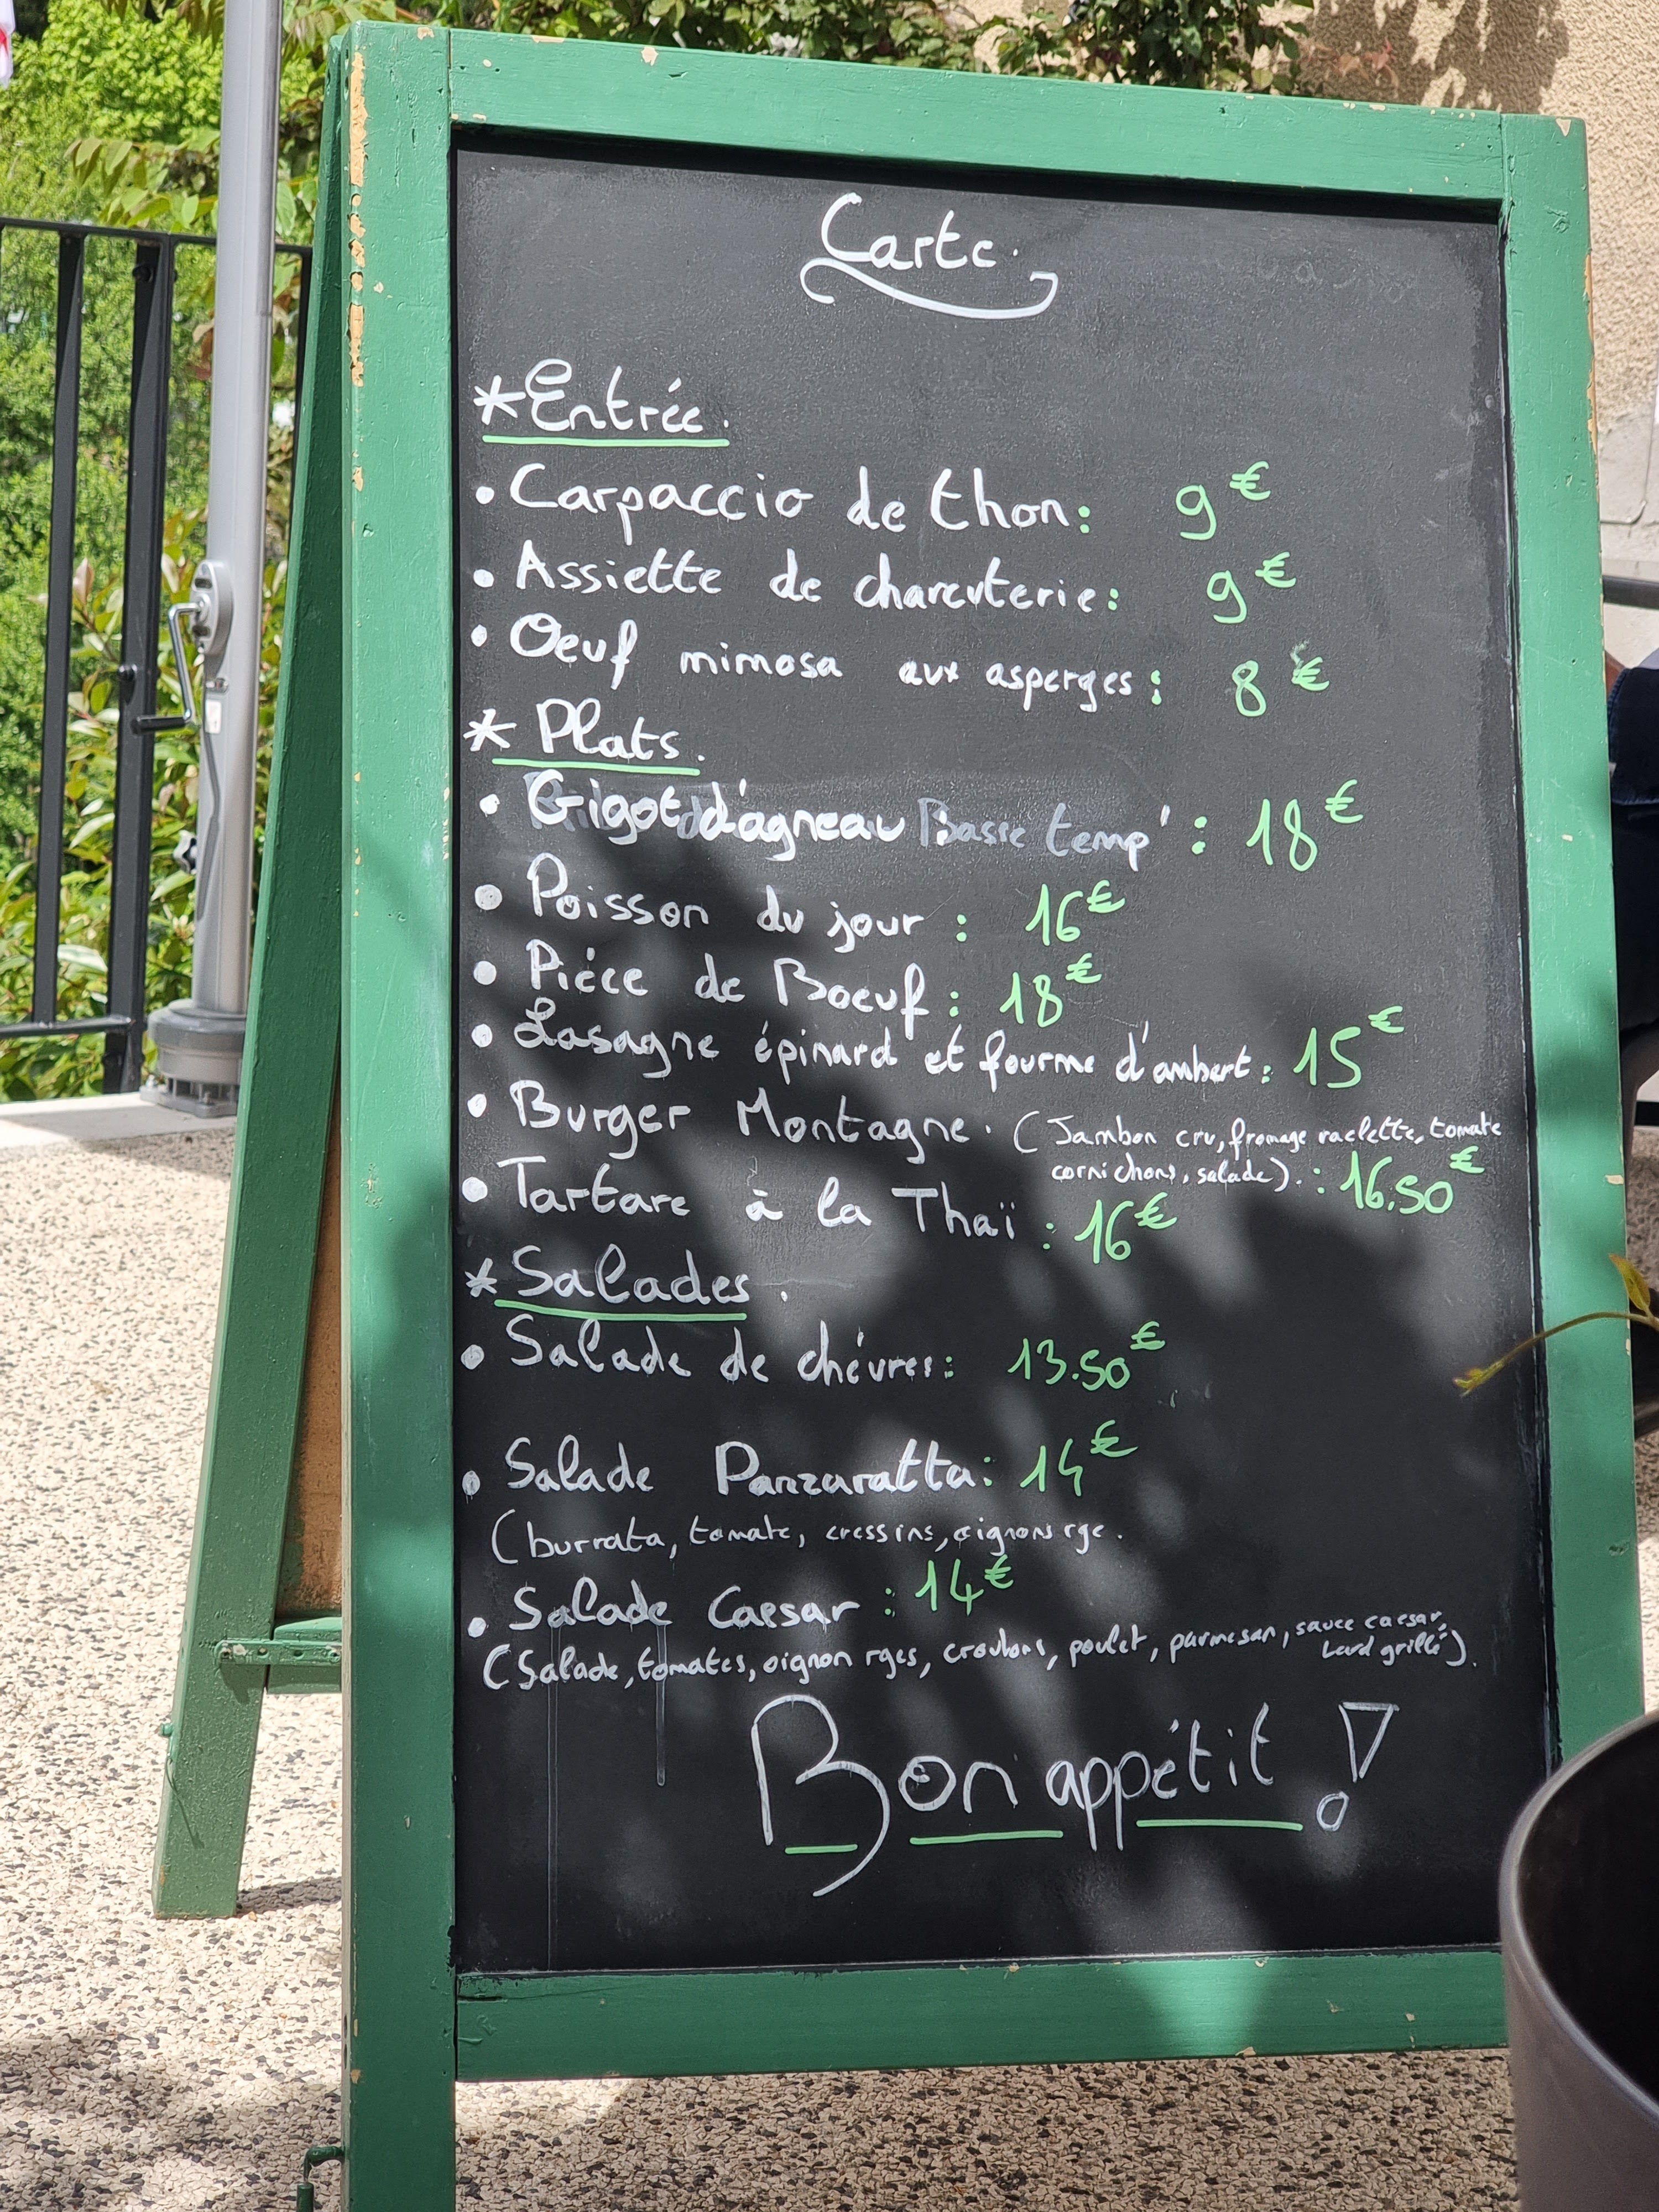 Carte.
*Entrée.
• Carpaccio de thon: 9€
• Assiette de charcuterie: 9€
• Oeuf mimosa aux asperges: 8€
* Plats.
• Gigot d'agneau Basse temp': 18€
• Poisson du jour: 16€
• Pièce de Boeuf: 18€
• Lasagne épinard et fourme d'ambert: 15€
• Burger Montagne. (Jambon cru, fromage raclette, tomate
cornichons, salade).: 16.50€
• Tartare à la Thaï: 16€
*Salades.
• Salade de chèvres: 13.50€
• Salade Panzaratta: 14€
(burrata, tomate, cressins, oignons rge.
• Salade Caesar: 14€
(Salade, tomates, oignon rges, croutons, poulet, parmesan, sauce caesar,
Lard grillé).
Bon appétit!